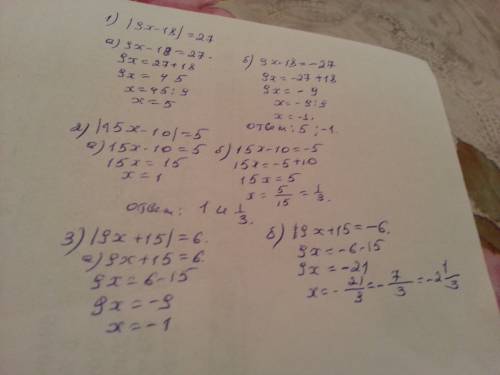 1) |9x-18| = 27
а) 9x-18=27.
9x=27+18
9x= 45
x=45:9
x=5
б) 9x-18=-27
9x=-27+18
9x=-9
x=-9:9
x=-1.
ответ: 5; -1.
2) |15x-10|=5
а) 15x-10=5
15x=15
x=1
б) 15x-10=-5
15x=-5+10
15x=5
x=5/15=1/3.
ответ: 1 и 1/3.
3) |9x+15|=6.
а) 9x+15=6.
9x=6-15
9x=-9
x=-1
б) |9x+15=-6.
9x=-6-15
9x=-21
x=-21/9=-7/3=-2 1/3